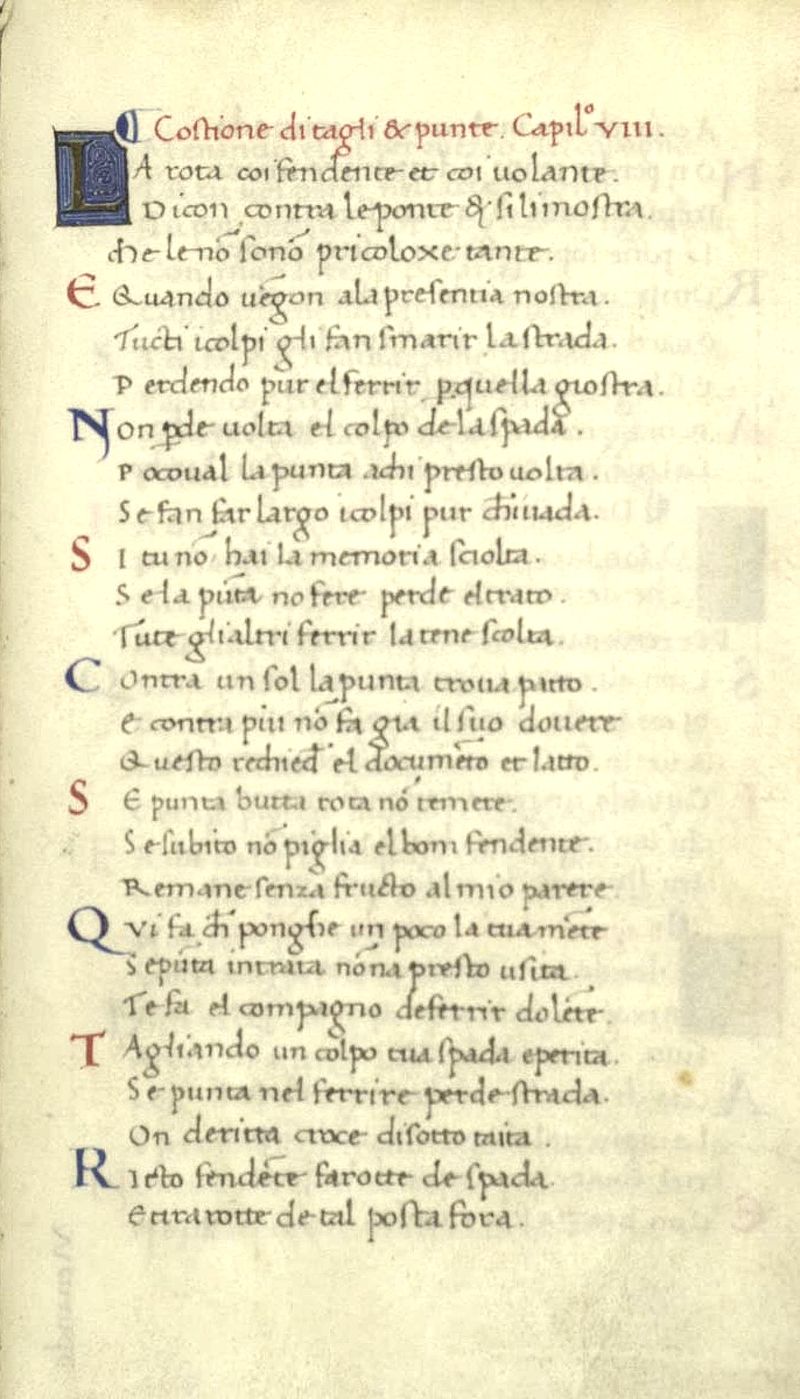 ¶ Costione di tagli & punte. Capil͞o VIII.
LA rota coi fendente et coi uolante.
Dicon contra le ponte & si li mostra.
che le nō sonō pricoloxe tante.
E Quando uegon ala presentia nostra.
Tucti icolpi gli fan smarir la strada.
Perdendo pur el ferrir p quella giostra.
Non pde uolta el colpo de la spada.
Pocoual la punta achi presto uolta.
Se fan far largo icolpi pur chi uada.
SI tu nō hai la memoria sciolta.
Se la pūta nō fere perde el trato.
Tute gli altri ferrir la tene scolta.
COntra un sol la punta troua patto.
E contra piu nō fa gia il suo douere
Questo rechied el documēto et latto.
SE punta butta rota nō temere.
Se subito nō piglia el bom fendente.
Remane senza fructo al mio parere
QVi fa ch ponghe un poco la tua mēte
Se pūta intrata nō na presto usita.
Te fa el compagno deferrir dolēte.
TAgliando un colpo tua spada e perita.
Se punta nel ferrire perde strada.
On deritta croce disotto taita.
RIesto fendēte farotte de spada
E trarotte de tal posta fora.